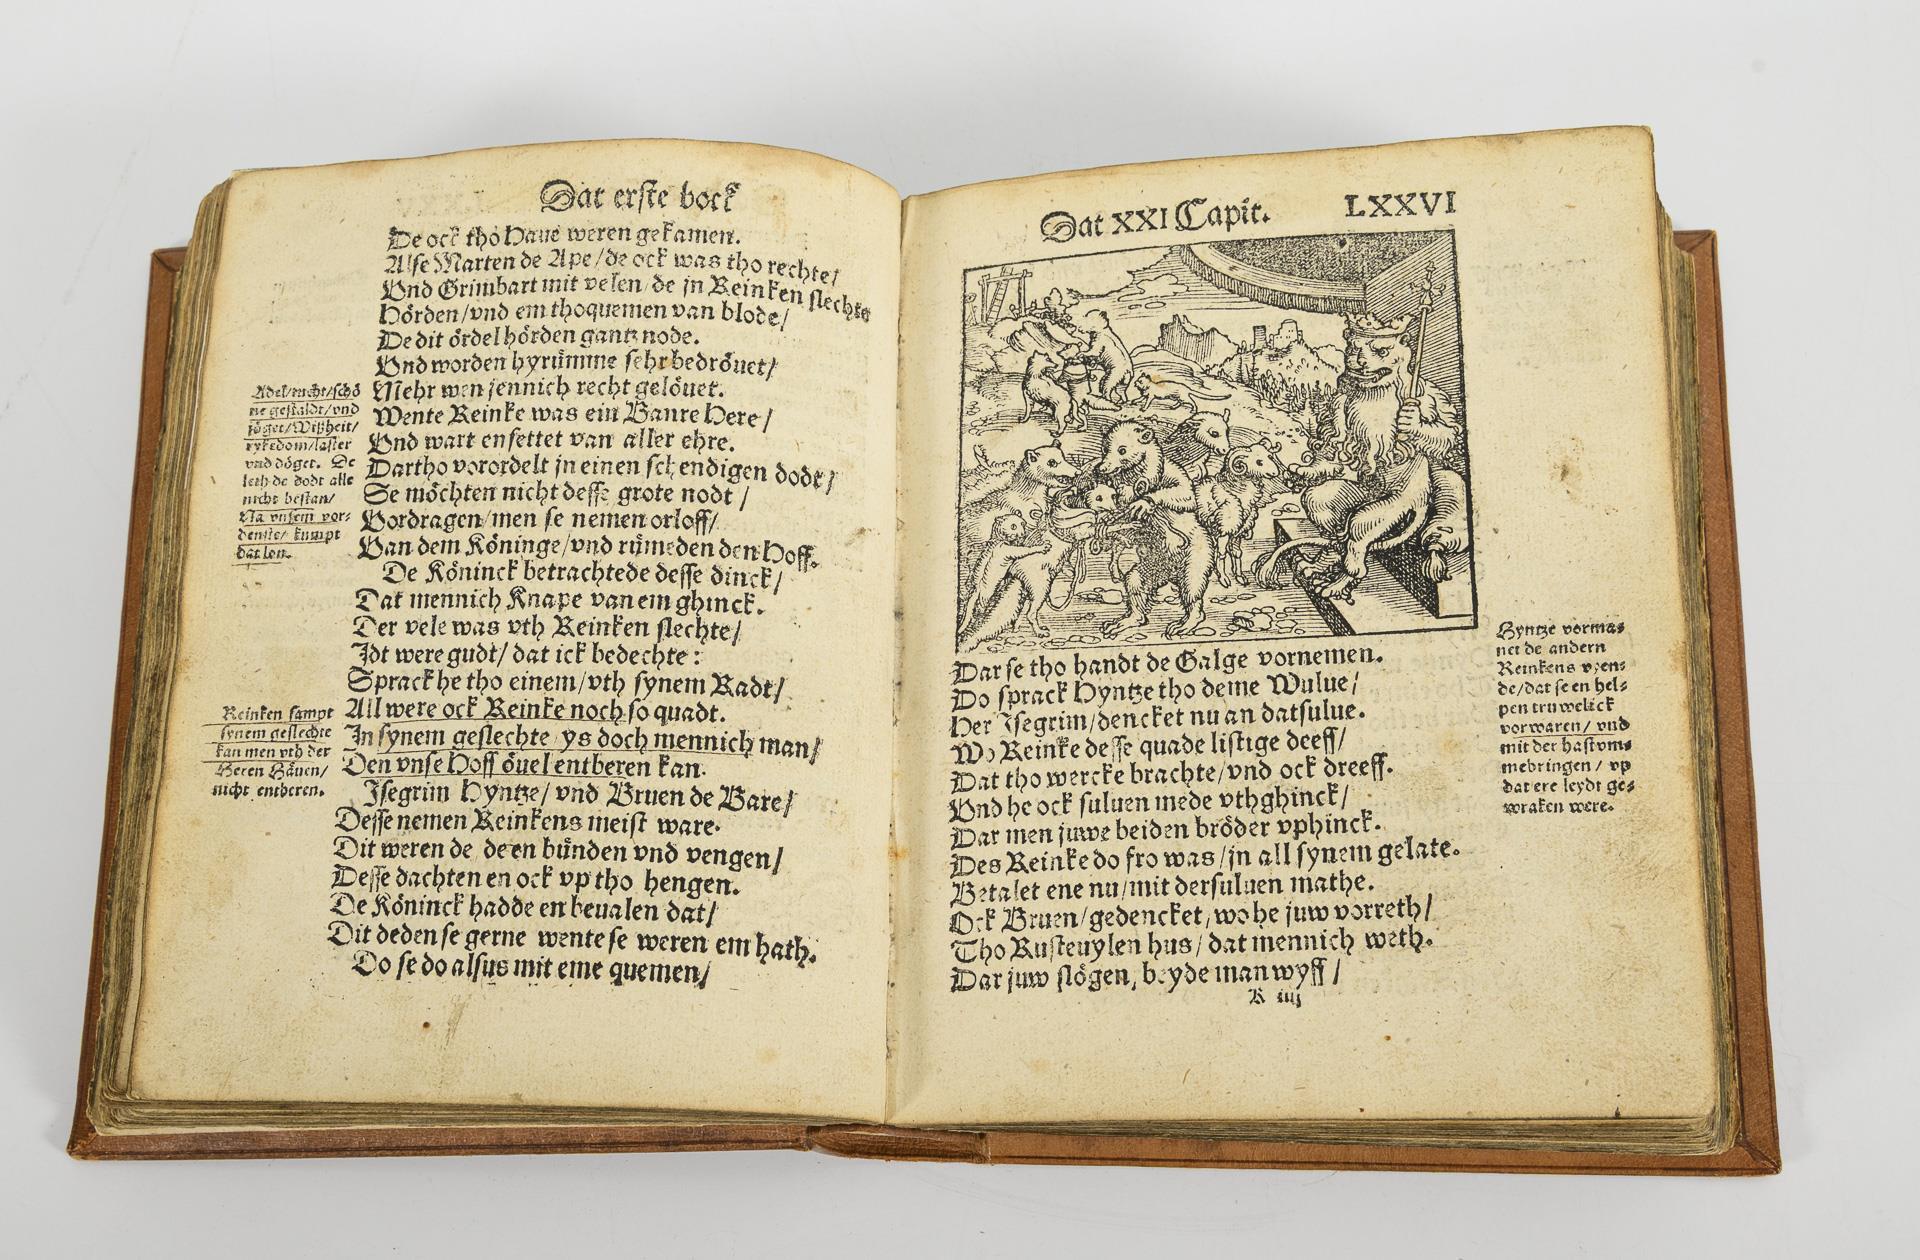 Dat erste bock
De ock tho Haue weren gekamen.
Alse Marten de Ape / de ock was tho rechte /
Vnd Grimbart mit velen / de jn Reinken slechte
Hörden / vnd em thoquemen van blode /
De dit ördel hörden gantz node.
Vnd worden hyrümme sehr bedröuet /
Mehr wen jennich recht gelöuet.
Wente Reinke was ein Banre Here /
Vnd wart entsettet van aller ehre.
Dartho vorordelt jn einen schendigen dodt /
Se möchten nicht desse grote nodt /
Vordragen / men se nemen orloff /
Van dem Köninge / vnd rümeden den Hoff.
De Köninck betrachtede desse dinck /
Dat mennich Knape van em ghinck.
Der vele was vth Reinken slechte /
Idt were gudt / dat ick bedechte :
Sprack he tho einem / vth synem Radt /
All were ock Reinke noch so quadt.
In synem geslechte ys doch mennich man /
Den vnse Hoff öuel entberen kan.
Isegrim Hyntze / vnd Bruen de Bare /
Desse nemen Reinkens meist ware.
Dit weren de deen bünden vnd vengen /
Desse dachten en ock vp tho hengen.
De Köninck hadde en beualen dat /
Dit deden se gerne wente se weren em hath.
Do se do alsus mit eme quemen /
Adel / macht / schö
ne gestaldt / vnd
söget / Wißheit /
rykedom / laster
vnd döget. De
leth de dodt alle
nicht bestan /
Na vnsem vor-
denste / kumpt
dat lon.
Reinken sampt
synem geslechte
kan men vth der
Heren Häuen /
nicht entberen.
Dat XXI Capit. LXXVI
Dar se tho handt de Galge vornemen.
Do sprack Hyntze tho deme Wulue /
Her Isegrim / dencket nu an datsulue.
Wo Reinke desse quade listige deeff /
Dat tho wercke brachte / vnd ock dreeff.
Vnd he ock suluen mede vthghinck /
Dar men juwe beiden bröder vphinck.
Des Reinke do fro was / jn all synem gelate.
Betalet ene nu / mit dersuluen mathe.
Ock Bruen / gedencket / wo he juw vorreth /
Tho Rusteuylen hus / dat mennich weth.
Dar juw slögen, beyde man wyff /
K iiij
Hyntze vorma-
net de andern
Reinkens vien-
de / dat se en hel-
pen truwelick
vorwaren / vnd
mit der hast vm-
mebringen / vp
dat ere leydt ge-
wraken were.